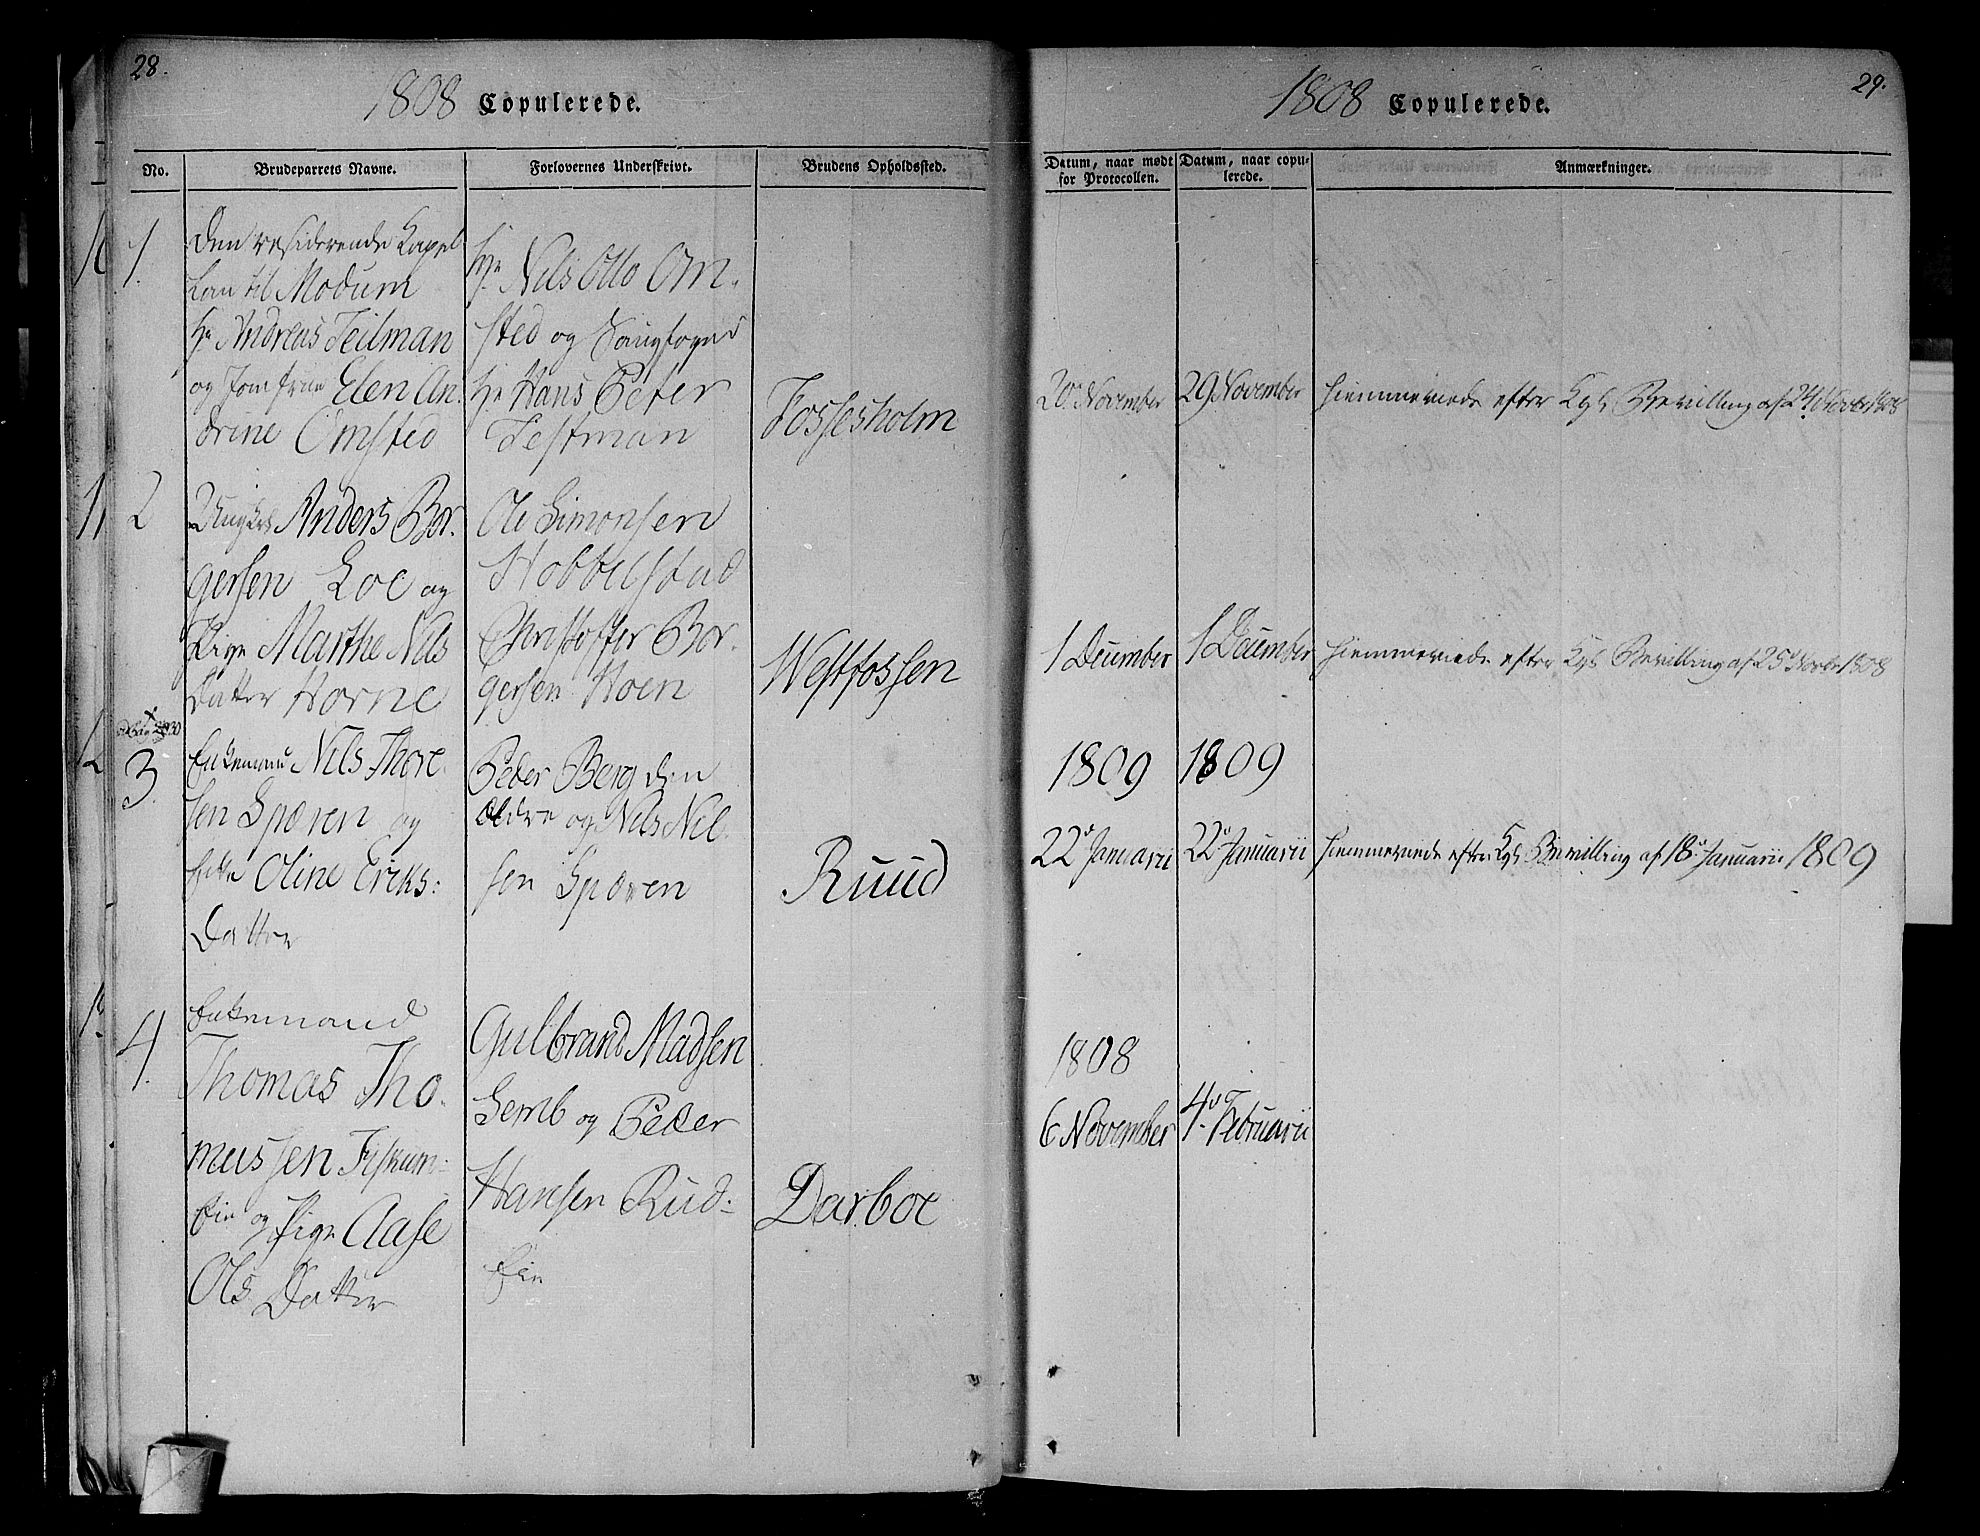 28.
1808 Copulerede.
No.
Brudeparrets Navne.
Forlovernes Underskrivt.
Brudens Opholdssted.
1.
Den residerende Capel
lan til Modum
Hr Andreas Feilman
og Jomfrue Elen An.
drine Omsted
Hr Nils Otto Om.
sted og Sougfoged
Hr Hans Peter
Festman
Fossesholm
2
Ungkrl Anders Bor.
gersen Loe og
Pige Marthe Nils
Datter Horne
Ole Simonsen
Hobbelstad
Christoffer Bor.
gersen Hoen
Westfossen
3.
Enkemand Nils Thore
sen Spæren og
Enke Oline Eriks:
Datter
Peder Berg den
Ældre og Nils Nil.
sen Spæren
Ruud
4.
Enkemand
Thomas Tho.
mussen Fiskum-
Eie og Pige Aase
Ols Datter
Gulbrand Madsen
Semb og Peder
Hansen Rud-
Eie
Darboe
1808 Copulerede.
29.
Datum, naar mødt
for Protocollen.
Datum, naar copu-
lerede.
Anmærkninger.
20. November
29 November
Hiemmeviede efter Kgl Bevilling af 24 Novbr 1808
1 December
1 December
Hiemmeviede efter Kgl Bevilling af 25 Novbr 1808
1809
1809
22 Januarii
22 Januarii
Hiemmeviede efter Kgl. Bevilling af 18 Januarii 1809
1808
6 November
4 Februarii